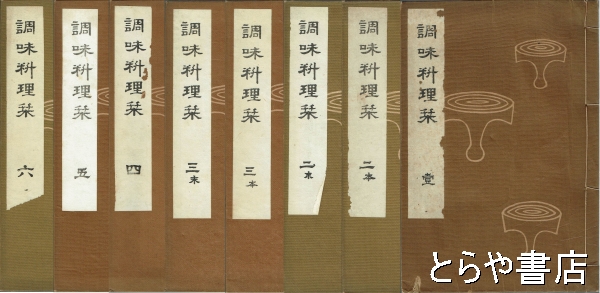 調味料理栞 壹
調味料理栞 二本
調味料理栞 二末
調味料理栞 三本
調味料理栞 三末
調味料理栞 四
調味料理栞 五
調味料理栞 六
とらや書店